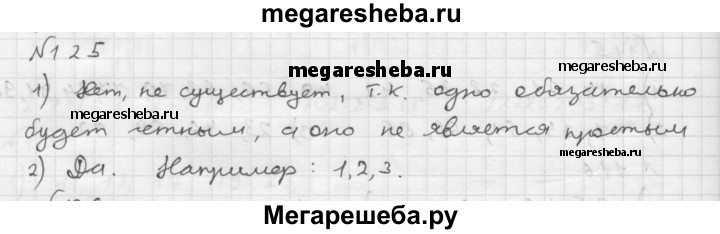 megaresheba.ru
№125
megaresheba.ru
1) Нет, не существует, т.к. одно обязательно
megaresheba.ru
будет четным, а оно не является простым
megaresheba.ru
2) Да. Например: 1, 2, 3.
Мегарешеба.ру